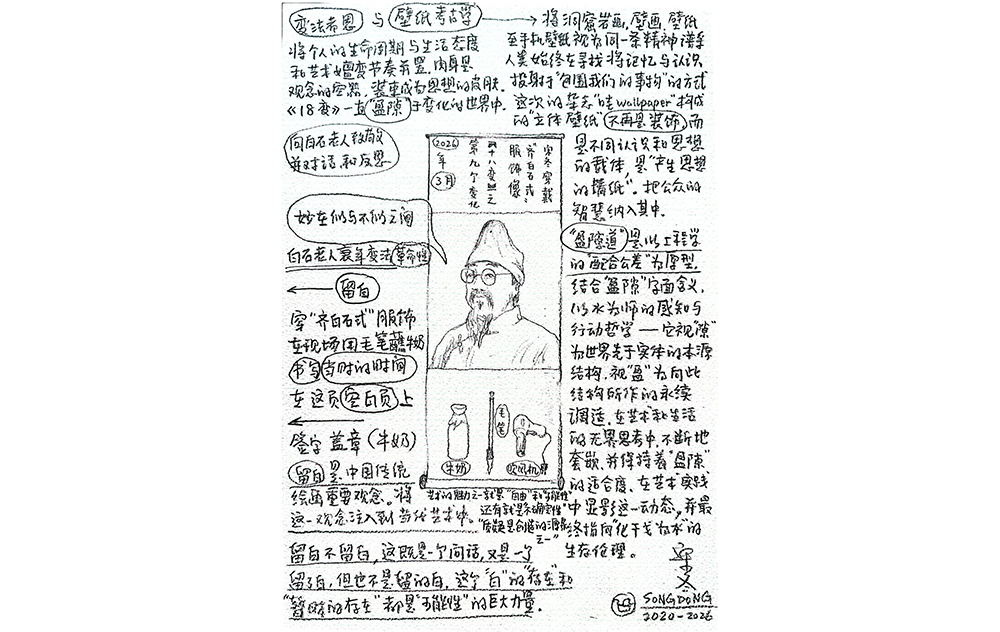 变法老恩 与 壁纸考古学
将洞窟岩画,壁画,壁纸
至手机壁纸视为同一条精神谱系
人类始终在寻找将记忆与认识
投射于"包围我们的事物"的方式
这次的杂志"哇wallpaper"构成
的"立体壁纸"不再是装饰,而
是不同认识和思想
的载体,是"产生思想
的墙纸"。把公众的
智慧纳入其中.
将个人的生命周期与生活态度
和艺术嬗变节奏前置.肉身是
观念的容器,装束成为思想的皮肤.
《18变》一直"盈隙"于变化的世界中.
向白石老人致敬
并对话和反思
妙在似与不似之间
白石老人衰年变法 革命性
留白
穿"齐白石式"服饰
在现场用毛笔蘸牛奶
书写当时的时间
在这页空白页上
签字 盖章(牛奶)
留白是中国传统
绘画重要观念。将
这一观念注入到当代艺术中。
2026
年
3月
宋冬穿戴
"齐白石式"
服饰像
四十八变之
第九个变化
牛奶
毛笔
吹风机
艺术的魅力之一就是"自由"和"可能性"
还有就是"不确定性"
"质疑是创造的源泉
之一"
"盈隙道"是以工程学
的"配合公差"为原型,
结合"盈隙"字面含义,
以水为师的感知与
行动哲学——它视"隙"
为世界先于实体的本源
结构,视"盈"为向此
结构所作的永续
调适.在艺术和生活
的无界思考中,不断地
套嵌,并保持着"盈隙"
的适合度.在艺术实践
中显影这一动态,并最
终指向"化干戈为水"的
生存伦理。
留白不留白,这既是一个问话,又是一个
留了白,但也不是留的白,这个"白"的"存在"和
"暂时的存在"都是"可能性"的巨大力量.
宋冬
SONG DONG
2020-2026